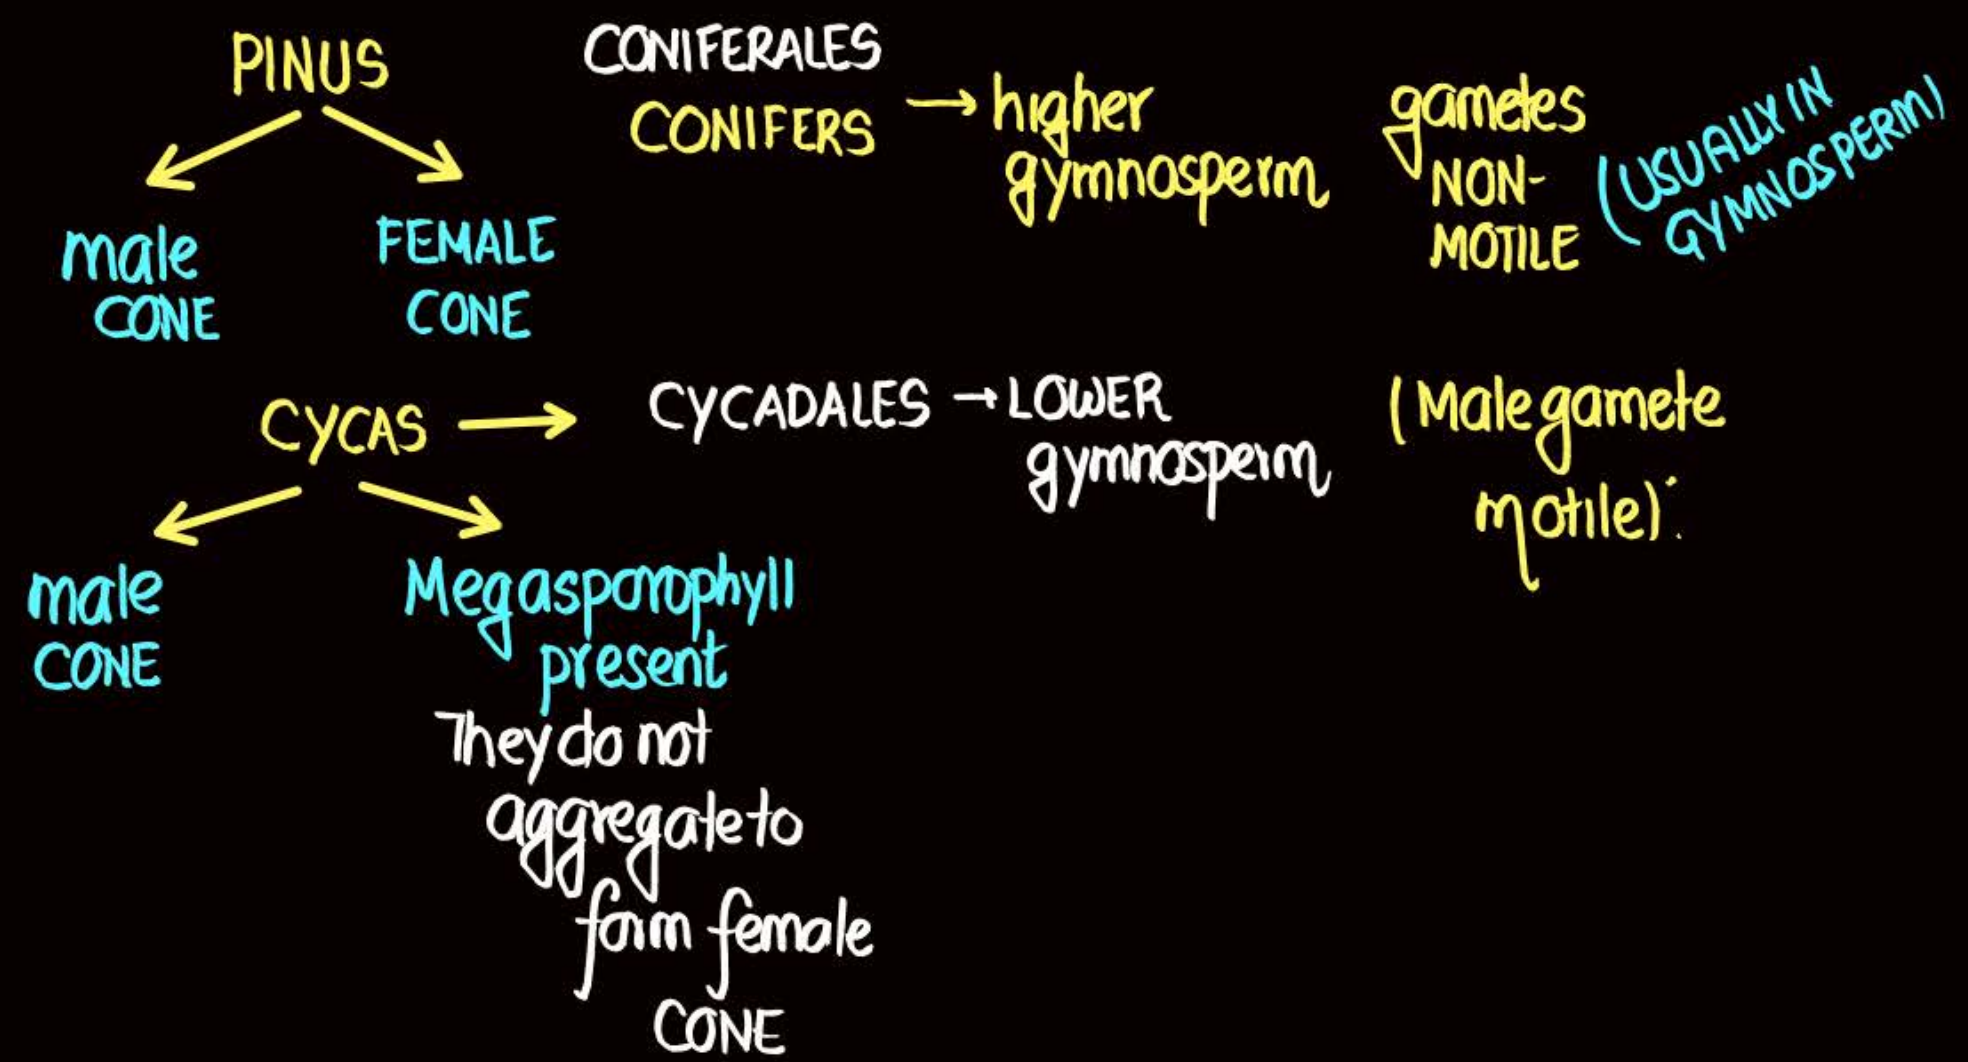 PINUS
male
CONE
FEMALE
CONE
CONIFERALES
CONIFERS → higher
gymnosperm
gametes
NON-
MOTILE
(USUALLY IN
GYMNOSPERM)
CYCAS → CYCADALES → LOWER
gymnosperm
(Male gamete
motile)
male
CONE
Megasporophyll
present
They do not
aggregate to
form female
CONE